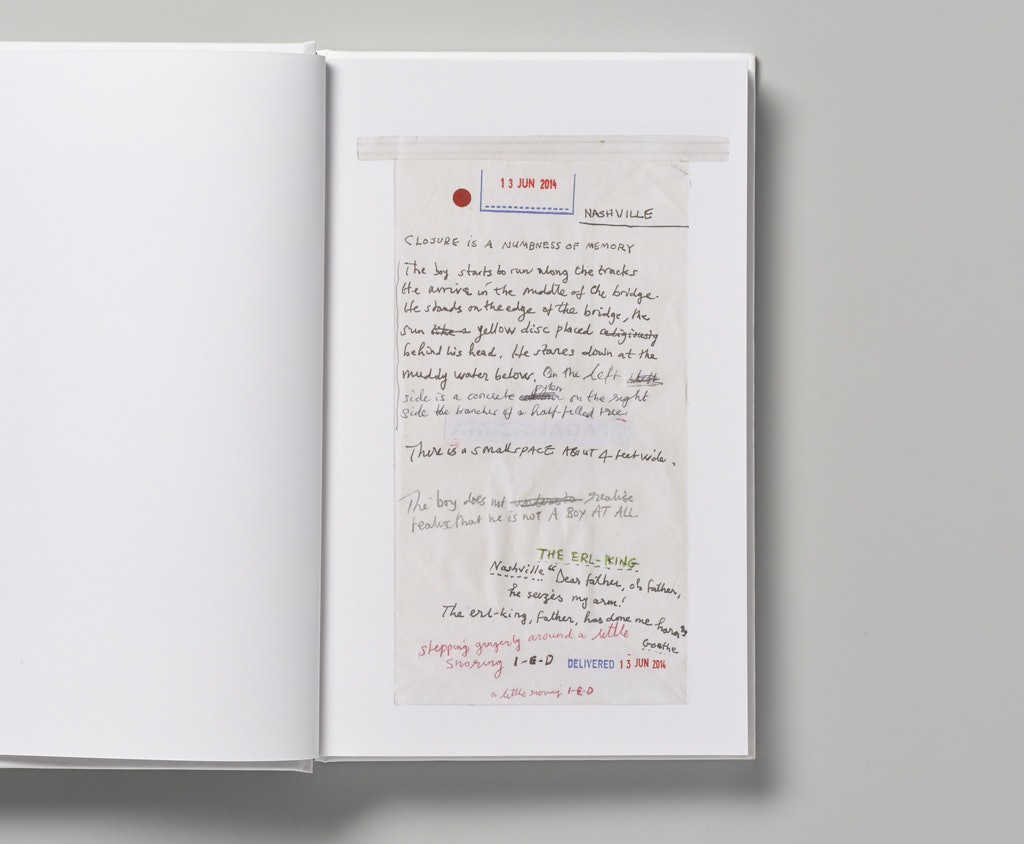 13 JUN 2014
NASHVILLE
CLOSURE IS A NUMBNESS OF MEMORY
The boy starts to run along the tracks
He arrive in the middle of the bridge.
He stands on the edge of the bridge, the
sun like a yellow disc placed religiously
behind his head. He stares down at the
muddy water below. On the left
side is a concrete pylon on the right
side the branches of a half-felled tree
There is a small SPACE ABOUT 4 feet wide.
The boy does not realise
realise that he is not A BOY AT ALL
THE ERL-KING
Nashville "Dear father, oh father,
he seizes my arm!
The erl-king, father, has done me harm"
Goethe
stepping gingerly around a little
snoring I-E-D
DELIVERED 13 JUN 2014
a little snoring I-E-D